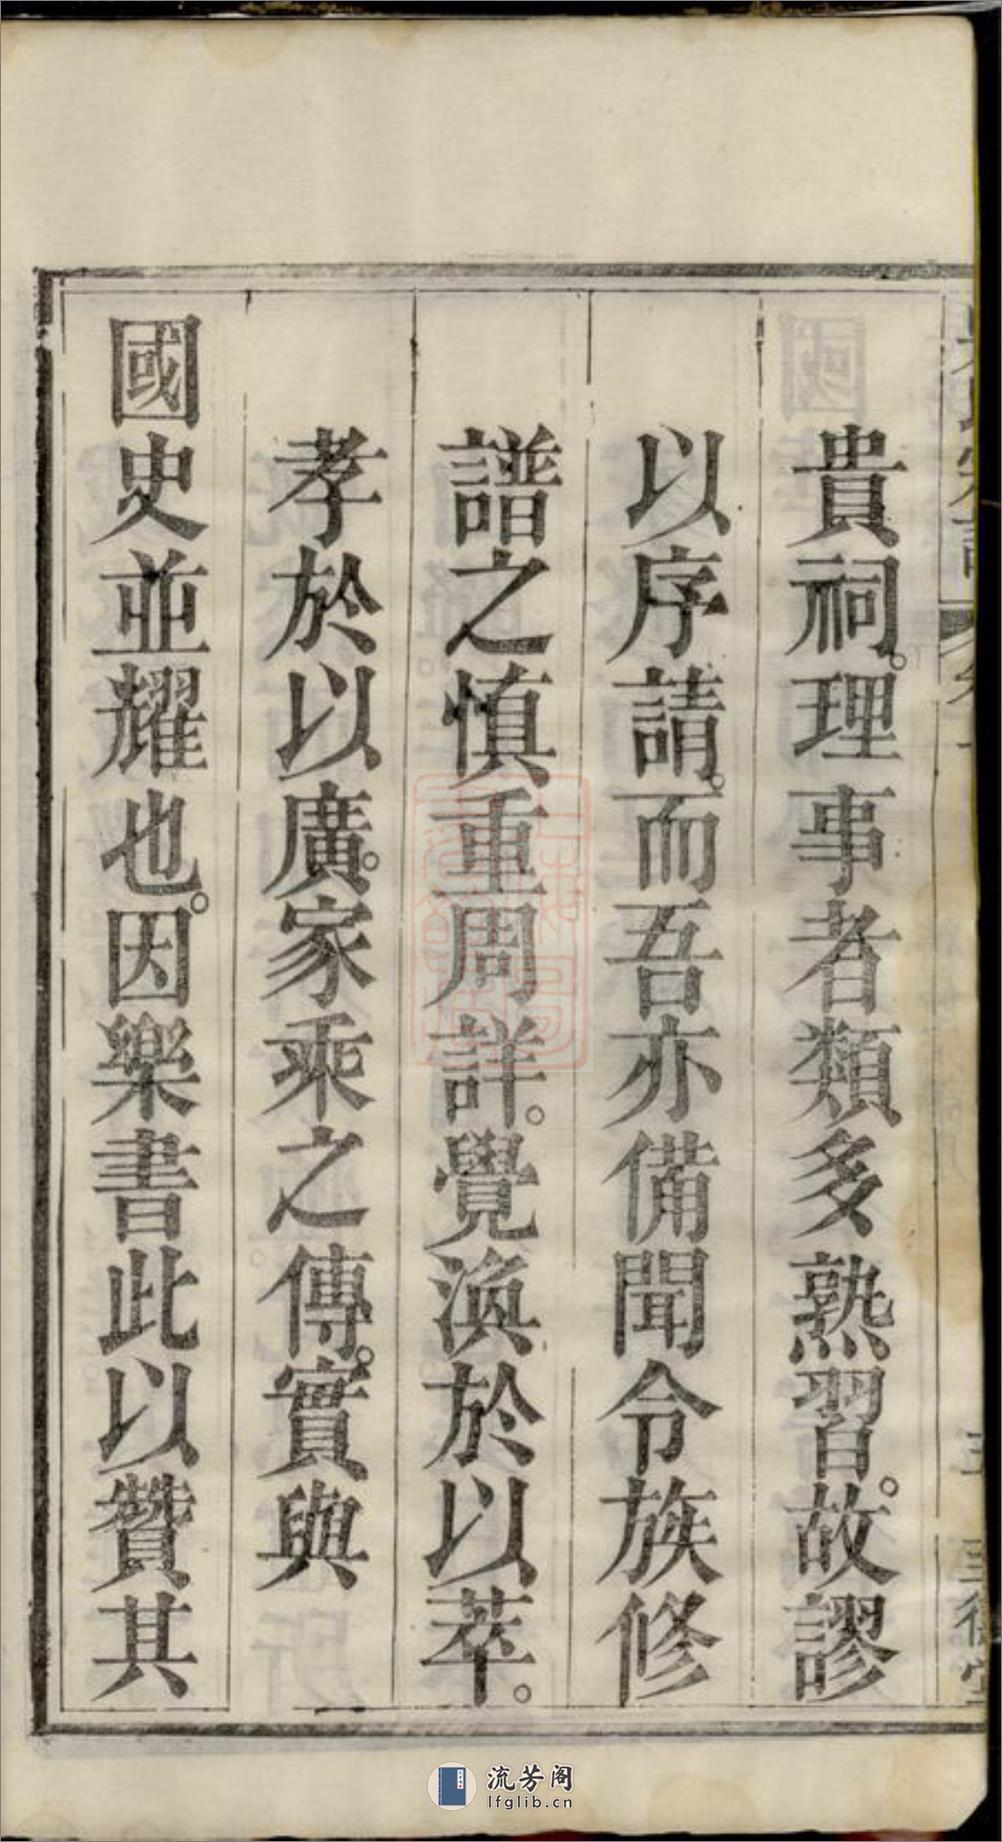 貴祠。理事者類多熟習。故謬
以序請。而吾亦備聞令族修
譜之慎重周詳。覺渙於以萃。
孝於以廣。家乘之傳。實與
國史並耀也。因樂書此以贊其
流芳阁
lfglib.cn